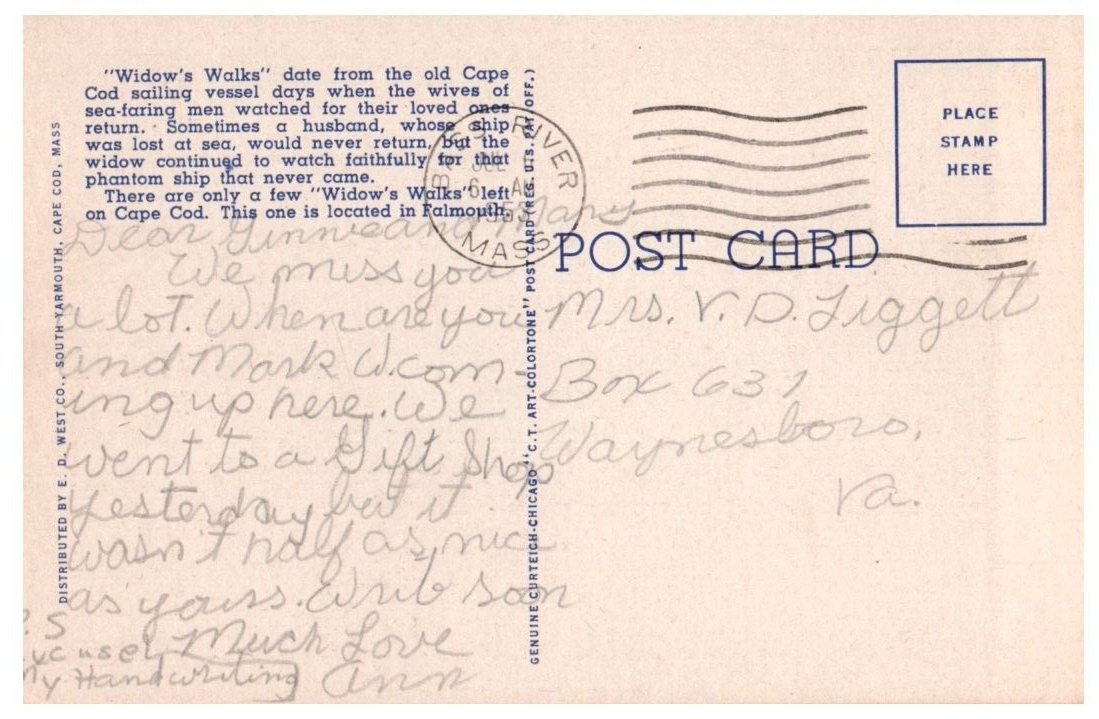 "Widow's Walks" date from the old Cape
Cod sailing vessel days when the wives of
sea-faring men watched for their loved ones
return. Sometimes a husband, whose ship
was lost at sea, would never return, but the
widow continued to watch faithfully for that
phantom ship that never came.
There are only a few "Widow's Walks" left
on Cape Cod. This one is located in Falmouth.
DISTRIBUTED BY E. D. WEST CO., SOUTH YARMOUTH, CAPE COD, MASS
Dear Ginnie and Mary
We miss you
a lot. When are you
and Mark W. com-
ing up here. We
went to a Gift Shop
yesterday but it
wasn't half as nice
as yours. Write soon
Much Love
Ann
P.S
Excuse
My Handwriting
GENUINE CURTEICH-CHICAGO "C.T. ART-COLORTONE" POST CARD (REG. U.S. PAT. OFF.)
RIVER
JUL
6
MASS
PLACE
STAMP
HERE
POST CARD
Mrs. V. D. Liggett
Box 631
Waynesboro,
Va.